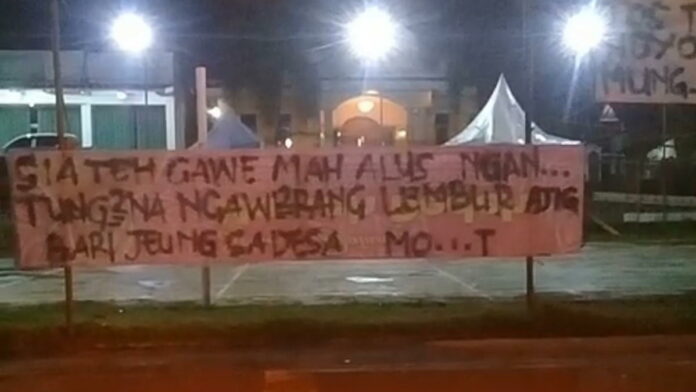 SIA TEH GAWE MAH ALUS NGAN...
TUNG2NA NGAWERANG LEMBUR AING
BARI JEUNG SADESA MO...T
MUNG..